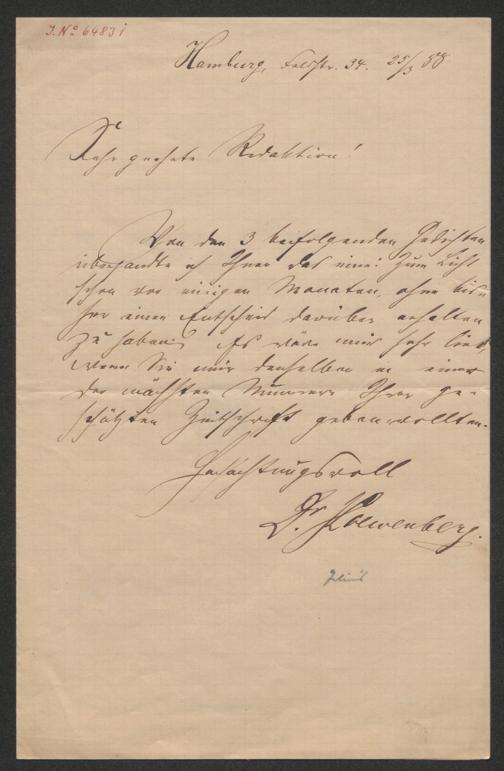 J. No 64831
Hamburg, Feldstr. 34. 25/3 88
Sehr geehrte Redaktion!
Von den 3 beifolgenden Gedichten
übersandte ich Ihnen das eine: Zum Licht
schon vor einigen Monaten, ohne bis-
her einen Entscheid darüber erhalten
zu haben. Es wäre mir sehr lieb,
wenn Sie mir denselben in einer
der nächsten Nummern Ihrer ge-
schätzten Zeitschrift geben wollten.
Hochachtungsvoll
Dr. J. Loewenberg.